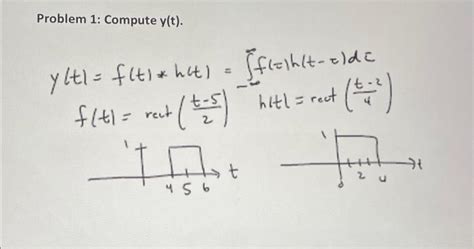 Problem 1: Compute y(t).
y(t) = f(t) * h(t) = ∫_{-∞}^{∞} f(τ)h(t-τ)dτ
f(t) = rect((t-5)/2) h(t) = rect((t-2)/4)
1 1
t t
4 5 6 0 2 4